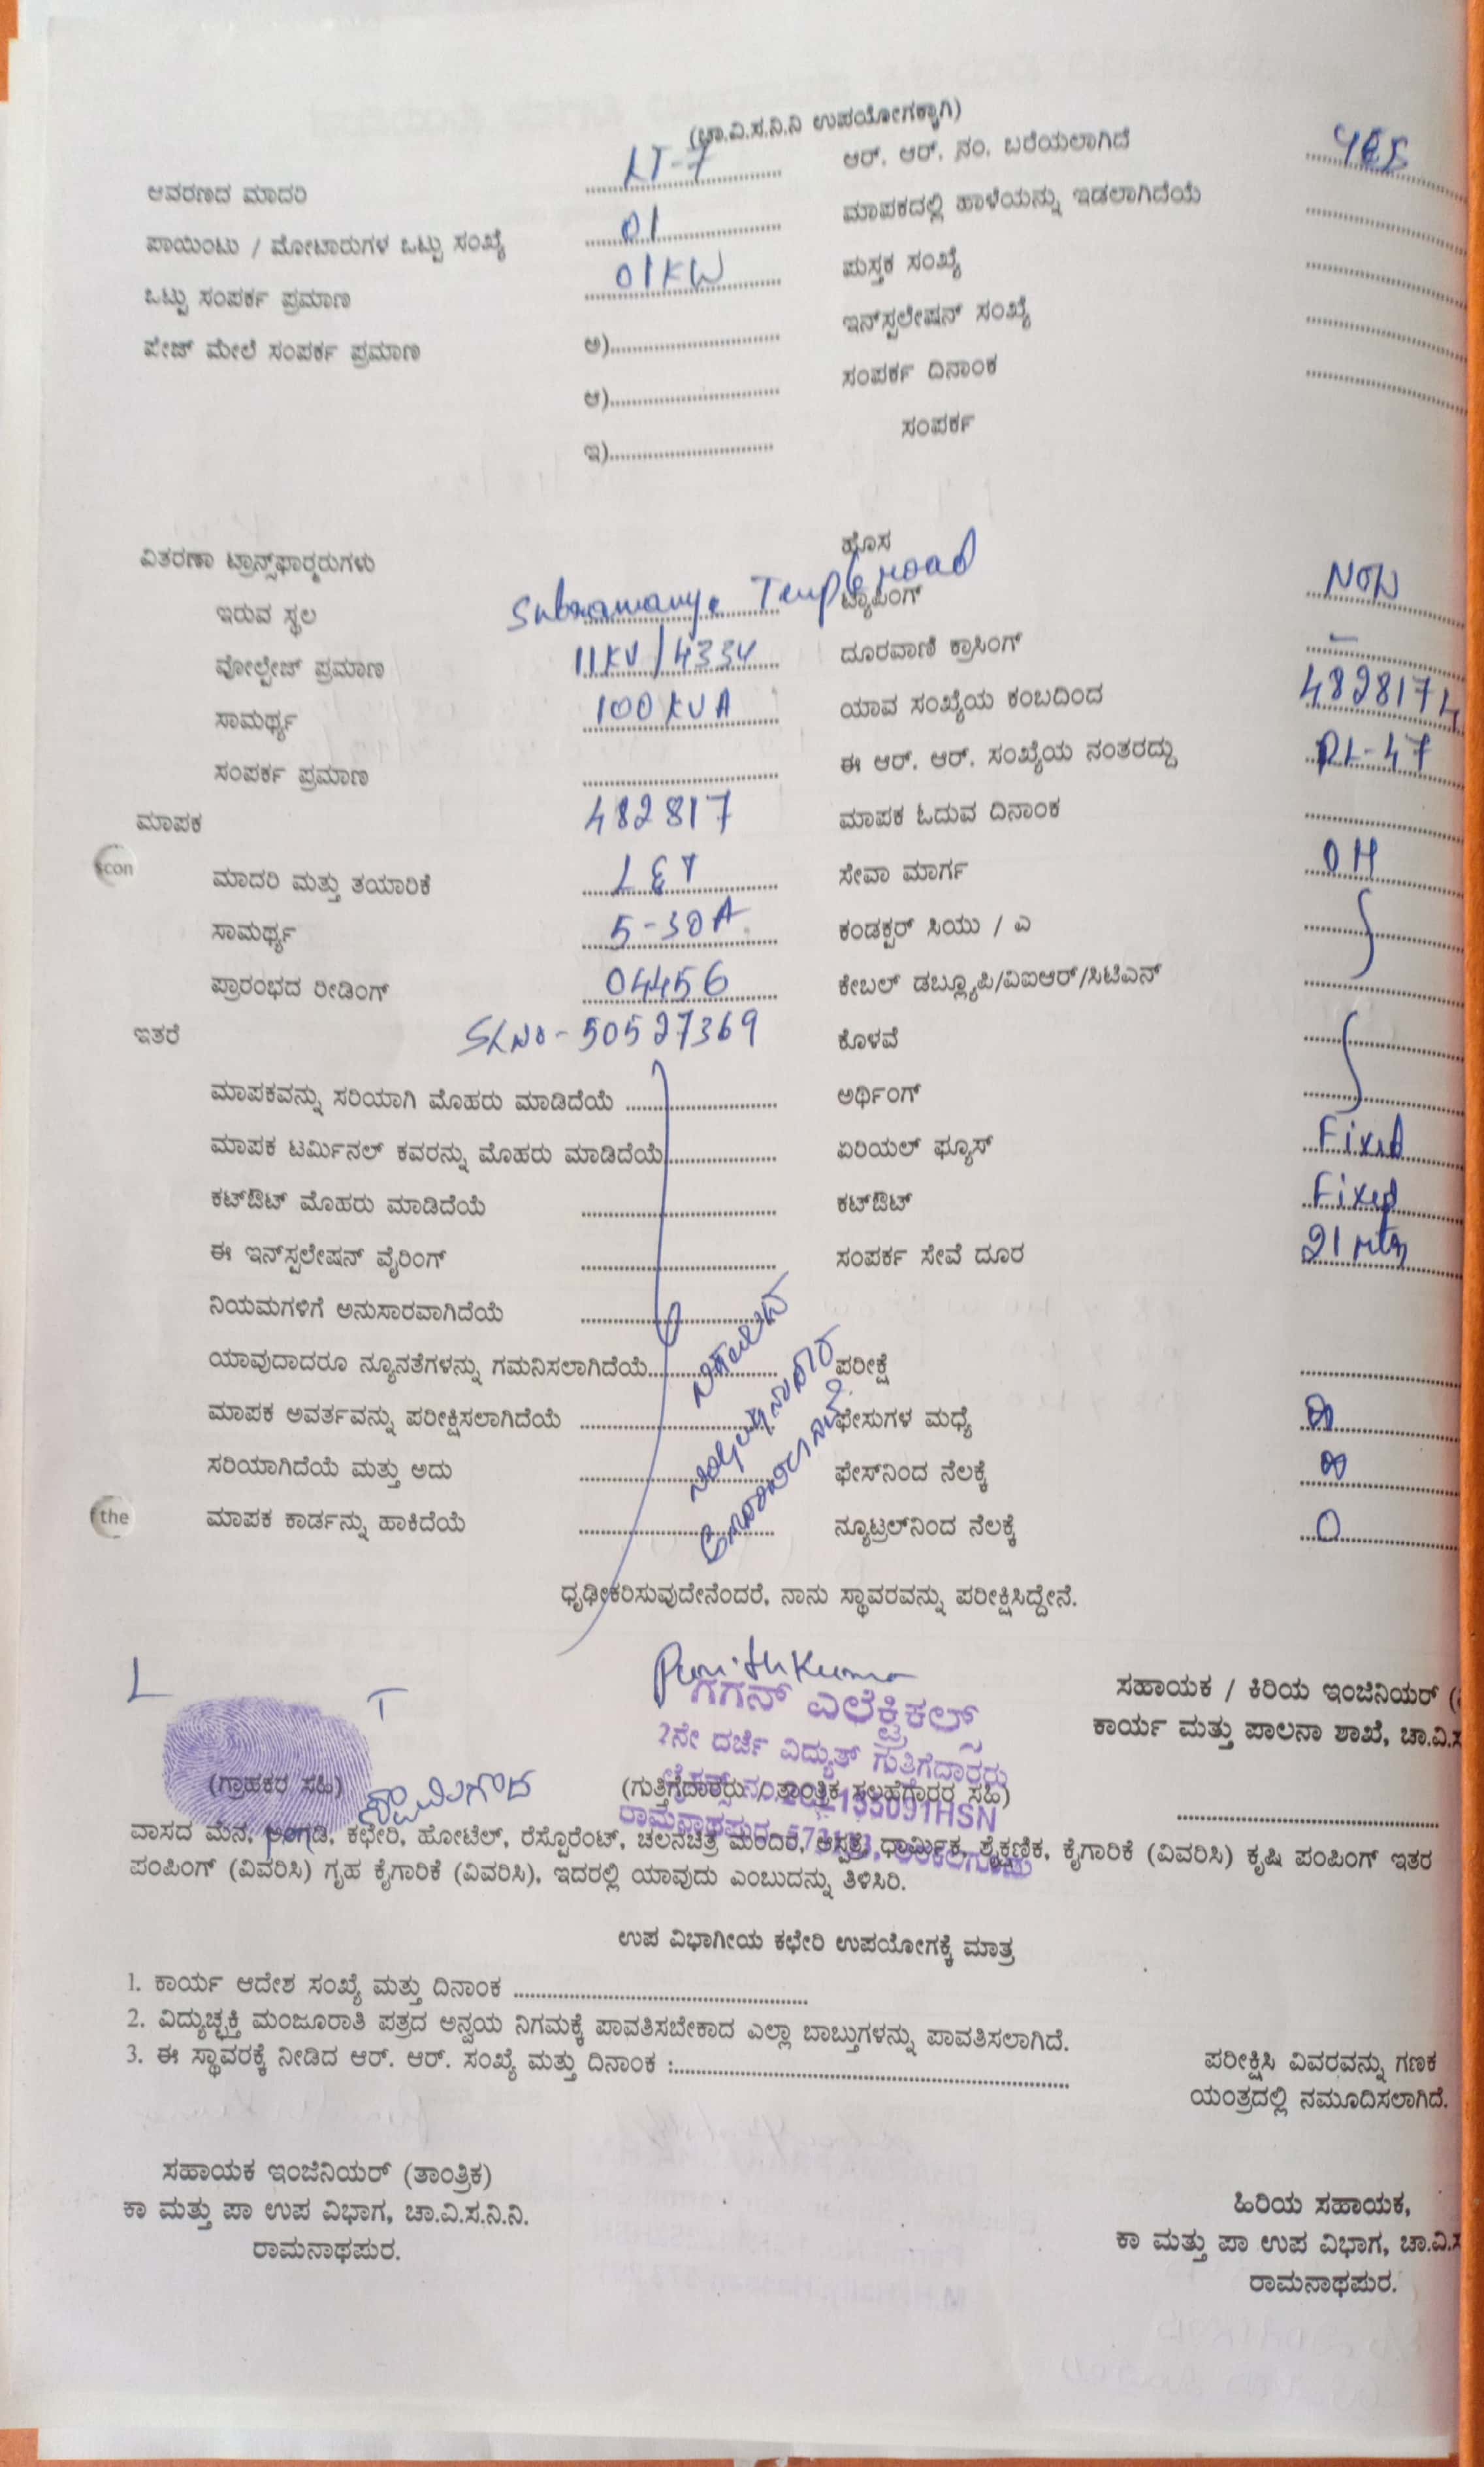 (ಚಾ.ವಿ.ಸ.ನಿ.ನಿ ಉಪಯೋಗಕ್ಕಾಗಿ)
ಆವರಣದ ಮಾದರಿ LT-7 ಆರ್. ಆರ್. ನಂ. ಬರೆಯಲಾಗಿದೆ YES
ಪಾಯಿಂಟು / ಮೋಟಾರುಗಳ ಒಟ್ಟು ಸಂಖ್ಯೆ 01 ಮಾಪಕದಲ್ಲಿ ಹಾಳೆಯನ್ನು ಇಡಲಾಗಿದೆಯೆ
ಒಟ್ಟು ಸಂಪರ್ಕ ಪ್ರಮಾಣ 01KW ಪುಸ್ತಕ ಸಂಖ್ಯೆ
ಪೇಜ್ ಮೇಲೆ ಸಂಪರ್ಕ ಪ್ರಮಾಣ ಅ) ಇನ್‌ಸ್ಟಲೇಷನ್ ಸಂಖ್ಯೆ
ಆ) ಸಂಪರ್ಕ ದಿನಾಂಕ
ಇ) ಸಂಪರ್ಕ
ವಿತರಣಾ ಟ್ರಾನ್ಸ್‌ಫಾರ್ಮರುಗಳು ಹೊಸ
ಇರುವ ಸ್ಥಲ Subramanya Temple road ಟ್ಯಾಪಿಂಗ್ NOW
ವೋಲ್ಟೇಜ್ ಪ್ರಮಾಣ 11KV/433V ದೂರವಾಣಿ ಕ್ರಾಸಿಂಗ್ –
ಸಾಮರ್ಥ್ಯ 100KVA ಯಾವ ಸಂಖ್ಯೆಯ ಕಂಬದಿಂದ 4828174
ಸಂಪರ್ಕ ಪ್ರಮಾಣ ಈ ಆರ್. ಆರ್. ಸಂಖ್ಯೆಯ ನಂತರದ್ದು RL-47
ಮಾಪಕ 482817 ಮಾಪಕ ಓದುವ ದಿನಾಂಕ
ಮಾದರಿ ಮತ್ತು ತಯಾರಿಕೆ L&T ಸೇವಾ ಮಾರ್ಗ OH
ಸಾಮರ್ಥ್ಯ 5-30A ಕಂಡಕ್ಟರ್ ಸಿಯು / ಎ
ಪ್ರಾರಂಭದ ರೀಡಿಂಗ್ 04456 ಕೇಬಲ್ ಡಬ್ಲ್ಯೂಪಿ/ವಿಐಆರ್/ಸಿಟಿಎನ್
ಇತರೆ SLNO-50527369 ಕೊಳವೆ
ಮಾಪಕವನ್ನು ಸರಿಯಾಗಿ ಮೊಹರು ಮಾಡಿದೆಯೆ ಅರ್ಥಿಂಗ್
ಮಾಪಕ ಟರ್ಮಿನಲ್ ಕವರನ್ನು ಮೊಹರು ಮಾಡಿದೆಯೆ ಏರಿಯಲ್ ಫ್ಯೂಸ್ Fixed
ಕಟ್‌ಔಟ್ ಮೊಹರು ಮಾಡಿದೆಯೆ ಕಟ್‌ಔಟ್ Fixed
ಈ ಇನ್‌ಸ್ಟಲೇಷನ್ ವೈರಿಂಗ್ ಸಂಪರ್ಕ ಸೇವೆ ದೂರ 21 mtr
ನಿಯಮಗಳಿಗೆ ಅನುಸಾರವಾಗಿದೆಯೆ
ಯಾವುದಾದರೂ ನ್ಯೂನತೆಗಳನ್ನು ಗಮನಿಸಲಾಗಿದೆಯೆ ಪರೀಕ್ಷೆ
ಮಾಪಕ ಅವರ್ತವನ್ನು ಪರೀಕ್ಷಿಸಲಾಗಿದೆಯೆ ಫೇಸುಗಳ ಮಧ್ಯೆ
ಸರಿಯಾಗಿದೆಯೆ ಮತ್ತು ಅದು ಫೇಸ್‌ನಿಂದ ನೆಲಕ್ಕೆ
ಮಾಪಕ ಕಾರ್ಡನ್ನು ಹಾಕಿದೆಯೆ ನ್ಯೂಟ್ರಲ್‌ನಿಂದ ನೆಲಕ್ಕೆ 0
ಧೃಢೀಕರಿಸುವುದೇನೆಂದರೆ, ನಾನು ಸ್ಥಾವರವನ್ನು ಪರೀಕ್ಷಿಸಿದ್ದೇನೆ.
L T PunithKumar
ಗಗನ್ ಎಲೆಕ್ಟ್ರಿಕಲ್ಸ್
2ನೇ ದರ್ಜೆ ವಿದ್ಯುತ್ ಗುತಿಗೆದಾರರು
ಸಹಾಯಕ / ಕಿರಿಯ ಇಂಜಿನಿಯರ್
ಕಾರ್ಯ ಮತ್ತು ಪಾಲನಾ ಶಾಖೆ, ಚಾ.ವಿ.ಸ
(ಗ್ರಾಹಕರ ಸಹಿ) (ಗುತ್ತಿಗೆದಾರರು / ತಾಂತ್ರಿಕ ಸಲಹೆಗಾರರ ಸಹಿ)
ವಾಸದ ಮನೆ, ಅಂಗಡಿ, ಕಛೇರಿ, ಹೋಟೆಲ್, ರೆಸ್ಟೊರೆಂಟ್, ಚಲನಚಿತ್ರ ಮಂದಿರ, ಆಸ್ಪತ್ರೆ, ಧಾರ್ಮಿಕ, ಶೈಕ್ಷಣಿಕ, ಕೈಗಾರಿಕೆ (ವಿವರಿಸಿ) ಕೃಷಿ ಪಂಪಿಂಗ್ ಇತರ
ಪಂಪಿಂಗ್ (ವಿವರಿಸಿ) ಗೃಹ ಕೈಗಾರಿಕೆ (ವಿವರಿಸಿ), ಇದರಲ್ಲಿ ಯಾವುದು ಎಂಬುದನ್ನು ತಿಳಿಸಿರಿ.
ಉಪ ವಿಭಾಗೀಯ ಕಛೇರಿ ಉಪಯೋಗಕ್ಕೆ ಮಾತ್ರ
1. ಕಾರ್ಯ ಆದೇಶ ಸಂಖ್ಯೆ ಮತ್ತು ದಿನಾಂಕ
2. ವಿದ್ಯುಚ್ಛಕ್ತಿ ಮಂಜೂರಾತಿ ಪತ್ರದ ಅನ್ವಯ ನಿಗಮಕ್ಕೆ ಪಾವತಿಸಬೇಕಾದ ಎಲ್ಲಾ ಬಾಬ್ತುಗಳನ್ನು ಪಾವತಿಸಲಾಗಿದೆ.
3. ಈ ಸ್ಥಾವರಕ್ಕೆ ನೀಡಿದ ಆರ್. ಆರ್. ಸಂಖ್ಯೆ ಮತ್ತು ದಿನಾಂಕ :
ಪರೀಕ್ಷಿಸಿ ವಿವರವನ್ನು ಗಣಕ
ಯಂತ್ರದಲ್ಲಿ ನಮೂದಿಸಲಾಗಿದೆ.
ಸಹಾಯಕ ಇಂಜಿನಿಯರ್ (ತಾಂತ್ರಿಕ)
ಕಾ ಮತ್ತು ಪಾ ಉಪ ವಿಭಾಗ, ಚಾ.ವಿ.ಸ.ನಿ.ನಿ.
ರಾಮನಾಥಪುರ.
ಹಿರಿಯ ಸಹಾಯಕ,
ಕಾ ಮತ್ತು ಪಾ ಉಪ ವಿಭಾಗ, ಚಾ.ವಿ.ಸ
ರಾಮನಾಥಪುರ.